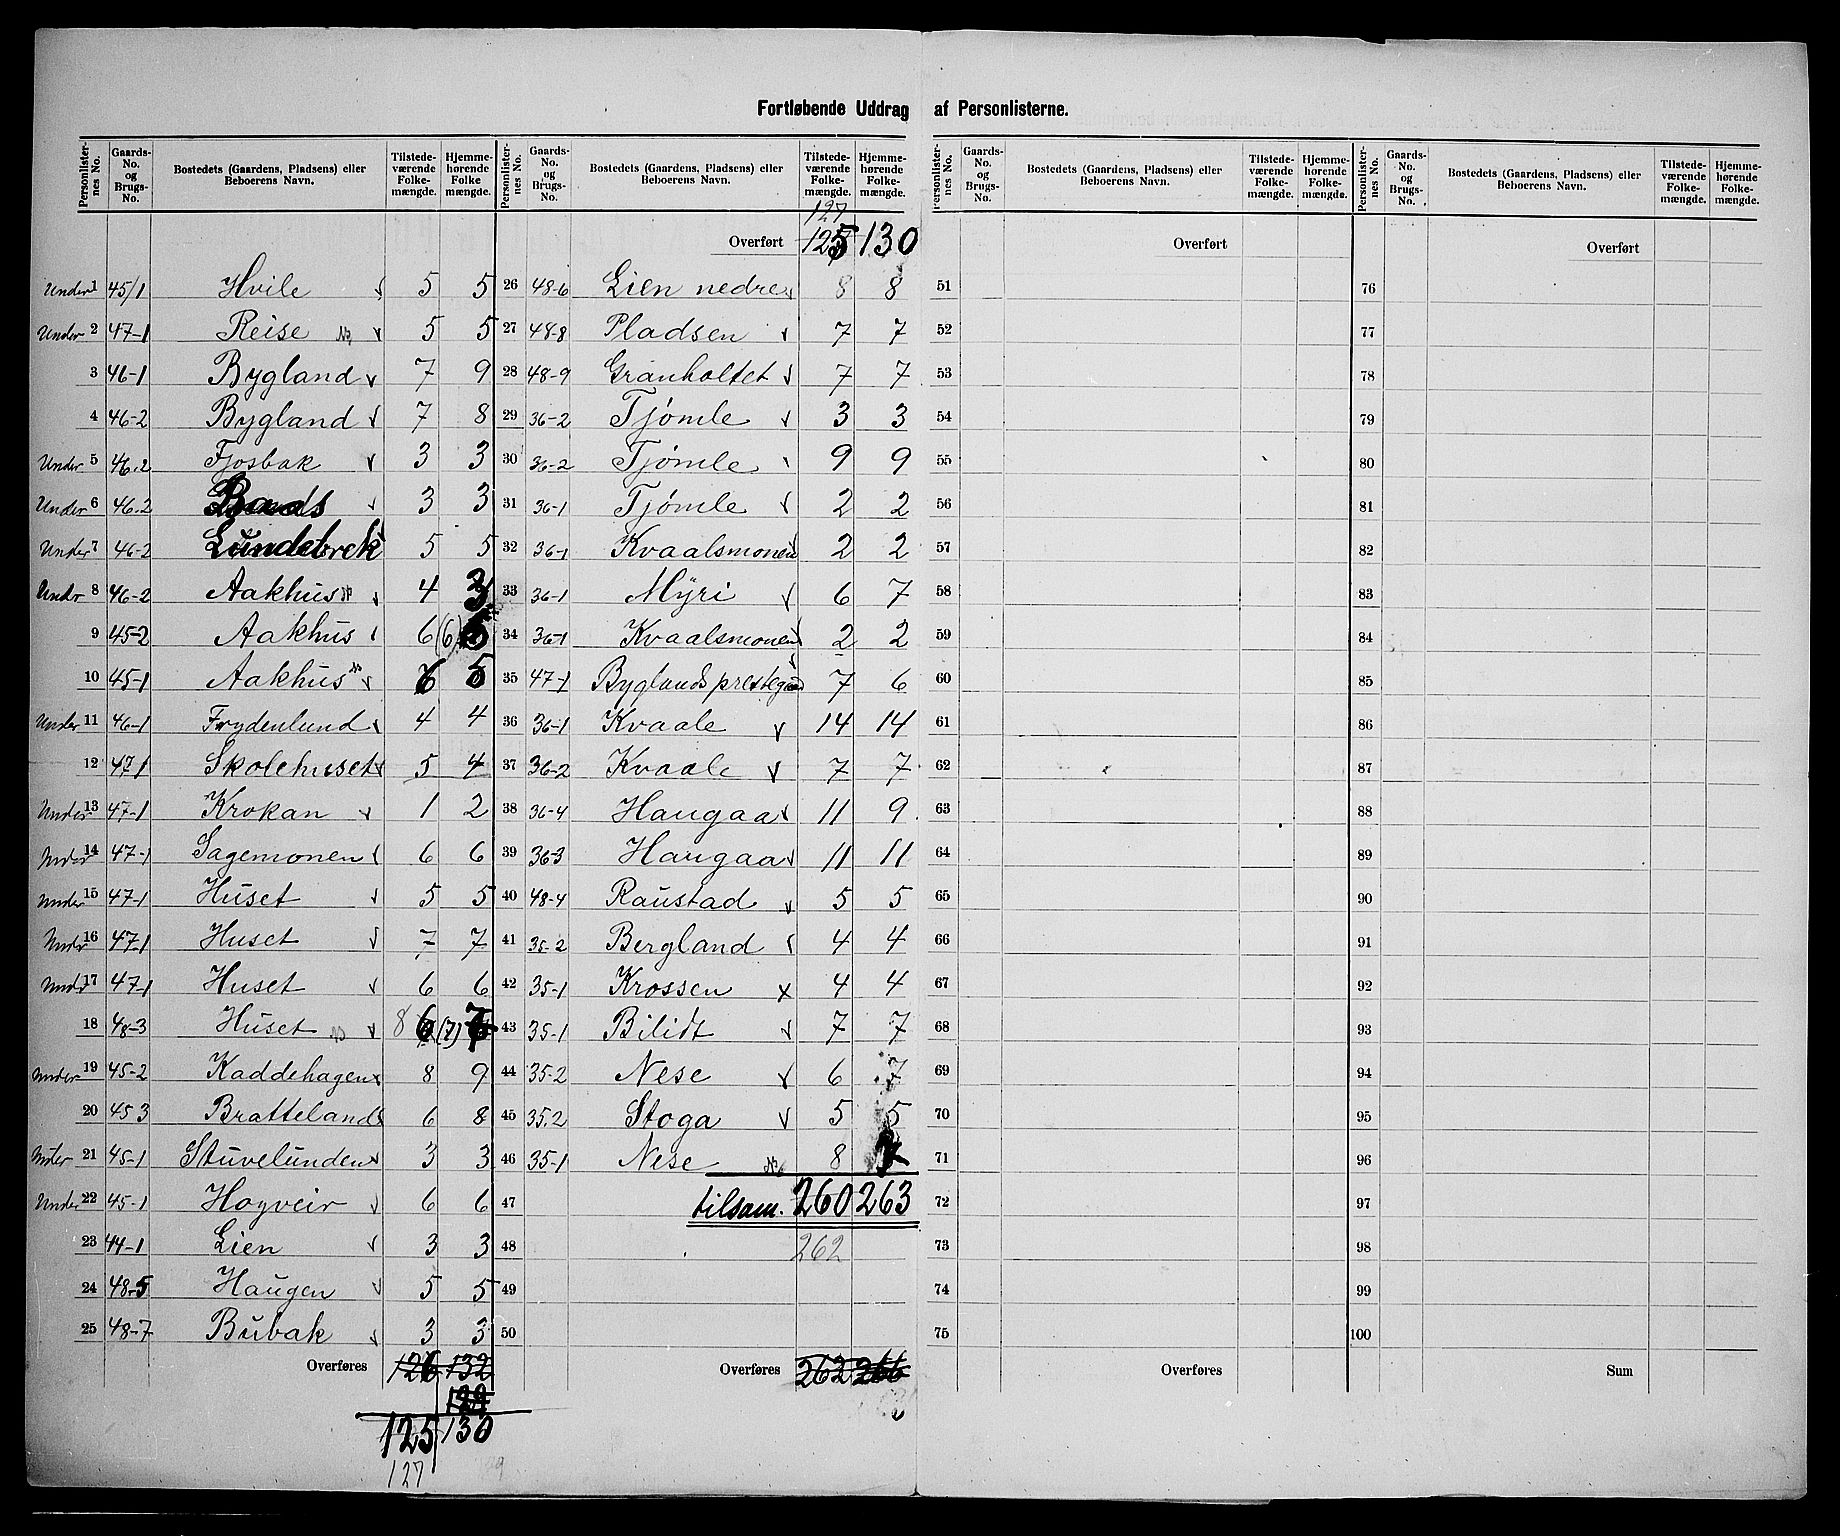 Fortløbende Uddrag af Personlisterne.
Personlister-nes No. Gaards-No. og Brugs-No. Bostedets (Gaardens, Pladsens) eller Beboerens Navn. Tilstede-værende Folke-mængde. Hjemme-hørende Folke-mængde.
Personlister-nes No. Gaards-No. og Brugs-No. Bostedets (Gaardens, Pladsens) eller Beboerens Navn. Tilstede-værende Folke-mængde. Hjemme-hørende Folke-mængde.
Personlister-nes No. Gaards-No. og Brugs-No. Bostedets (Gaardens, Pladsens) eller Beboerens Navn. Tilstede-værende Folke-mængde. Hjemme-hørende Folke-mængde.
Personlister-nes No. Gaards-No. og Brugs-No. Bostedets (Gaardens, Pladsens) eller Beboerens Navn. Tilstede-værende Folke-mængde. Hjemme-hørende Folke-mængde.
Under 1 45/1 Hvile 5 5
Under 2 47-1 Reise 5 5
3 46-1 Bygland 7 9
4 46-2 Bygland 7 8
Under 5 46.2 Fjosbak 3 3
Under 6 46.2 3 3
Under 7 46-2 Lundebrek 5 5
Undr 8 46-2 Aakhus 4 3
9 45-2 Aakhus 6 (6) 5
10 45-1 Aakhus 6 5
Under 11 46-1 Frydenlund 4 4
12 47-1 Skolehuset 5 4
Under 13 47-1 Krokan 1 2
Under 14 47-1 Sagemonen 6 6
Under 15 47-1 Huset 5 5
Undr 16 47-1 Huset 7 7
Undr 17 47-1 Huset 6 6
18 48-3 Huset 8 6 (7) 7
Under 19 45-2 Kaddehagen 8 9
20 45 3 Bratteland 6 8
Under 21 45-1 Stuvelunden 3 3
Under 22 45-1 Hogveir 6 6
23 44-1 Lien 3 3
24 48-5 Haugen 5 5
25 48-7 Bubak 3 3
Overføres 126 132
129
125 130
127
127
Overført 125 130
26 48-6 Lien nedre 8 8
27 48-8 Pladsen 7 7
28 48-9 Granholtet 7 7
29 36-2 Tjømle 3 3
30 36-2 Tjømle 9 9
31 36-1 Tjømle 2 2
32 36-1 Kvaalsmonen 2 2
33 36-1 Myri 6 7
34 36-1 Kvaalsmonen 2 2
35 47-1 Byglands prestegaard 7 6
36 36-1 Kvaale 14 14
37 36-2 Kvaale 7 7
38 36-4 Haugaa 11 9
39 36-3 Haugaa 11 11
40 48-4 Raustad 5 5
41 35-2 Bergland 4 4
42 35-1 Krossen x 4 4
43 35-1 Bilidt 7 7
44 35-2 Nese 6 7
45 35.2 Stoga 5 5
46 35-1 Nese 8 7
47 tilsam. 260 263
48 262
49
50
Overføres 262 266
Overført
51
52
53
54
55
56
57
58
59
60
61
62
63
64
65
66
67
68
69
70
71
72
73
74
75
Overføres
Overført
76
77
78
79
80
81
82
83
84
85
86
87
88
89
90
91
92
93
94
95
96
97
98
99
100
Sum